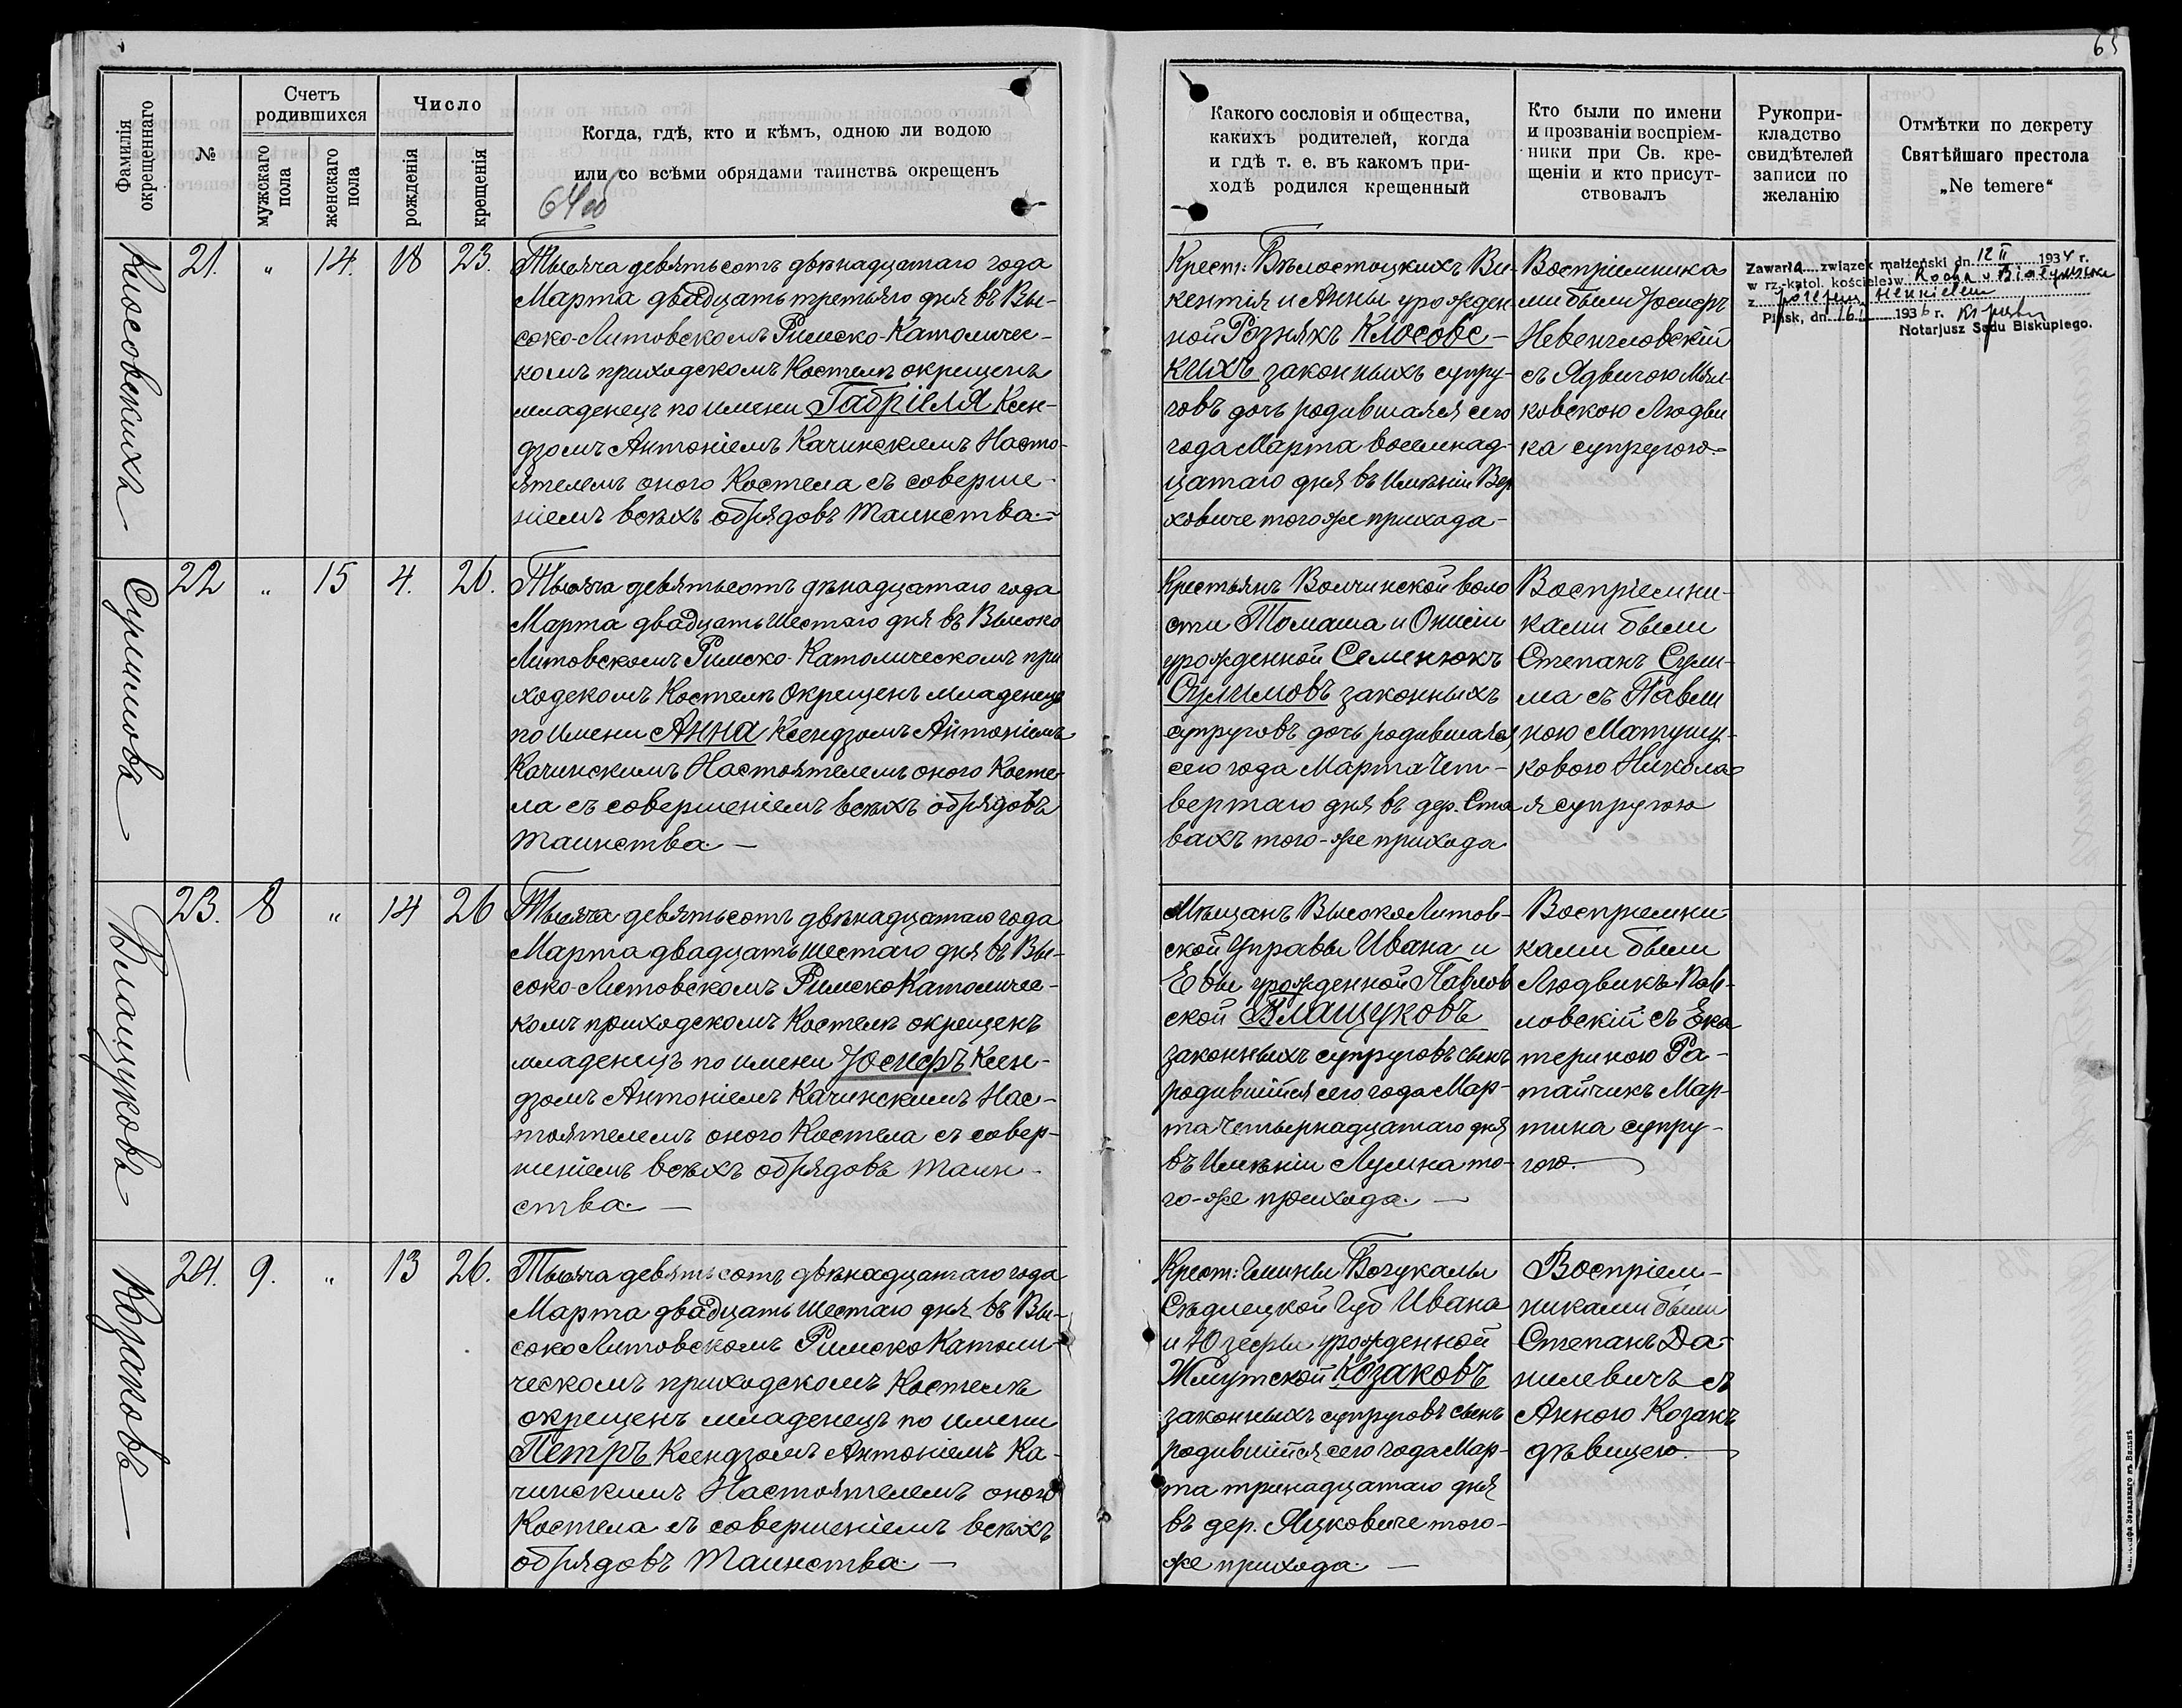 65
Фамилія окрещеннаго
№
Счетъ родившихся
мужскаго пола
женскаго пола
Число
рожденія
крещенія
Когда, гдѣ, кто и кѣмъ, одною ли водою
или со всѣми обрядами таинства окрещенъ
64об
Какого сословія и общества,
какихъ родителей, когда
и гдѣ т. е. въ какомъ при-
ходѣ родился крещенный
Кто были по имени
и прозваніи воспріем-
ники при Св. кре-
щеніи и кто присут-
ствовалъ
Рукопри-
кладство
свидѣтелей
записи по
желанію
Отмѣтки по декрету
Святѣйшаго престола
„Ne temere“
Клосовскихъ
21. „ 14. 18 23.
Тысяча девятьсотъ двѣнадцатаго года
Марта двадцать третьяго дня въ Вы-
соко-Литовскомъ Римско-Католичес-
комъ приходскомъ Костелѣ окрещенъ
младенецъ по имени Габріеля Ксен-
дзомъ Антоніемъ Качинскимъ Насто-
ятелемъ оного Костела съ соверше-
ніемъ всѣхъ обрядовъ таинства.-
Крест: Бѣлостоцкихъ Ви-
кентія и Анны урожден
ной Рознякъ Клосовс-
кихъ законныхъ супру-
говъ дочь родившаяся сего
года Марта восемнад-
цатаго дня въ Имѣніи Вер
ховиче того же прихода-
Воспріемника
ми были Іосифъ
Невенгловскій
съ Ядвигою Мил-
ковскою Людви
ка супругою.-
Zawarła związek małżeński dn. 12 II 1934 r.
w rz.-katol. kościele w Rocha w Białymstoku
z Józefem Henkielem
Pińsk, dn. 16 1936 r.
Notarjusz Sądu Biskupiego.
Сулимова
22 „ 15 4. 26.
Тысяча девятьсотъ двѣнадцатаго года
Марта двадцать шестаго дня въ Высоко
Литовскомъ Римско-Католическомъ при
ходскомъ Костелѣ окрещенъ младенецъ
по имени Анна Ксендзомъ Антоніемъ
Качинскимъ Настоятелемъ оного Косте-
ла съ совершеніемъ всѣхъ обрядовъ
таинства.-
Крестьянъ Волчинской воло
сти Томаша и Онисіи
урожденной Семенюкъ
Сулимовъ законныхъ
супруговъ дочь родившаяся
сего года Марта Чет-
вертаго дня въ дер. Ста
вахъ того-же прихода
Воспріемни-
ками были
Степанъ Сули-
ма съ Павли
ною Матушу-
ковою Никола-
я супругою
Влащуковъ
23. 8 „ 14 26
Тысяча девятьсотъ двѣнадцатаго года
Марта двадцать шестаго дня въ Вы-
соко-Литовскомъ Римско Католичес-
комъ приходскомъ Костелѣ окрещенъ
младенецъ по имени Іосифъ Ксен-
дзомъ Антоніемъ Качинскимъ Нас-
тоятелемъ оного Костела съ совер-
шеніемъ всѣхъ обрядовъ таин-
ства.-
Мѣщанъ Высоко Литов-
ской Управы Ивана и
Евы урожденной Павлов
ской Влащуковъ
законныхъ супруговъ сынъ
родившійся сего года Мар-
та Четырнадцатаго дня
въ Имѣніи Лумна то-
го-же прихода.-
Воспріемни
ками были
Людвикъ Пав-
ловскій съ Ека
териною Ра-
тайчикъ Мар-
тина супру-
гою.
Козаковъ
24. 9. „ 13 26.
Тысяча девятьсотъ двѣнадцатаго года
Марта двадцать шестаго дня въ Вы-
соко Литовскомъ Римско Католи-
ческомъ приходскомъ Костелѣ
окрещенъ младенецъ по имени
Петръ Ксендзомъ Антоніемъ Ка-
чинскимъ Настоятелемъ оного
Костела съ совершеніемъ всѣхъ
обрядовъ таинства.-
Крест: Гмины Богукалы
Сѣдлецкой Губ Ивана
и Юзефы урожденной
Жмутской Козаковъ
законныхъ супруговъ сынъ
родившійся сего года Мар-
та тринадцатаго дня
въ дер. Яцковиче того-
же прихода.-
Воспріем-
никами были
Степанъ Да-
нилевичъ съ
Анною Козакъ
дѣвицею.